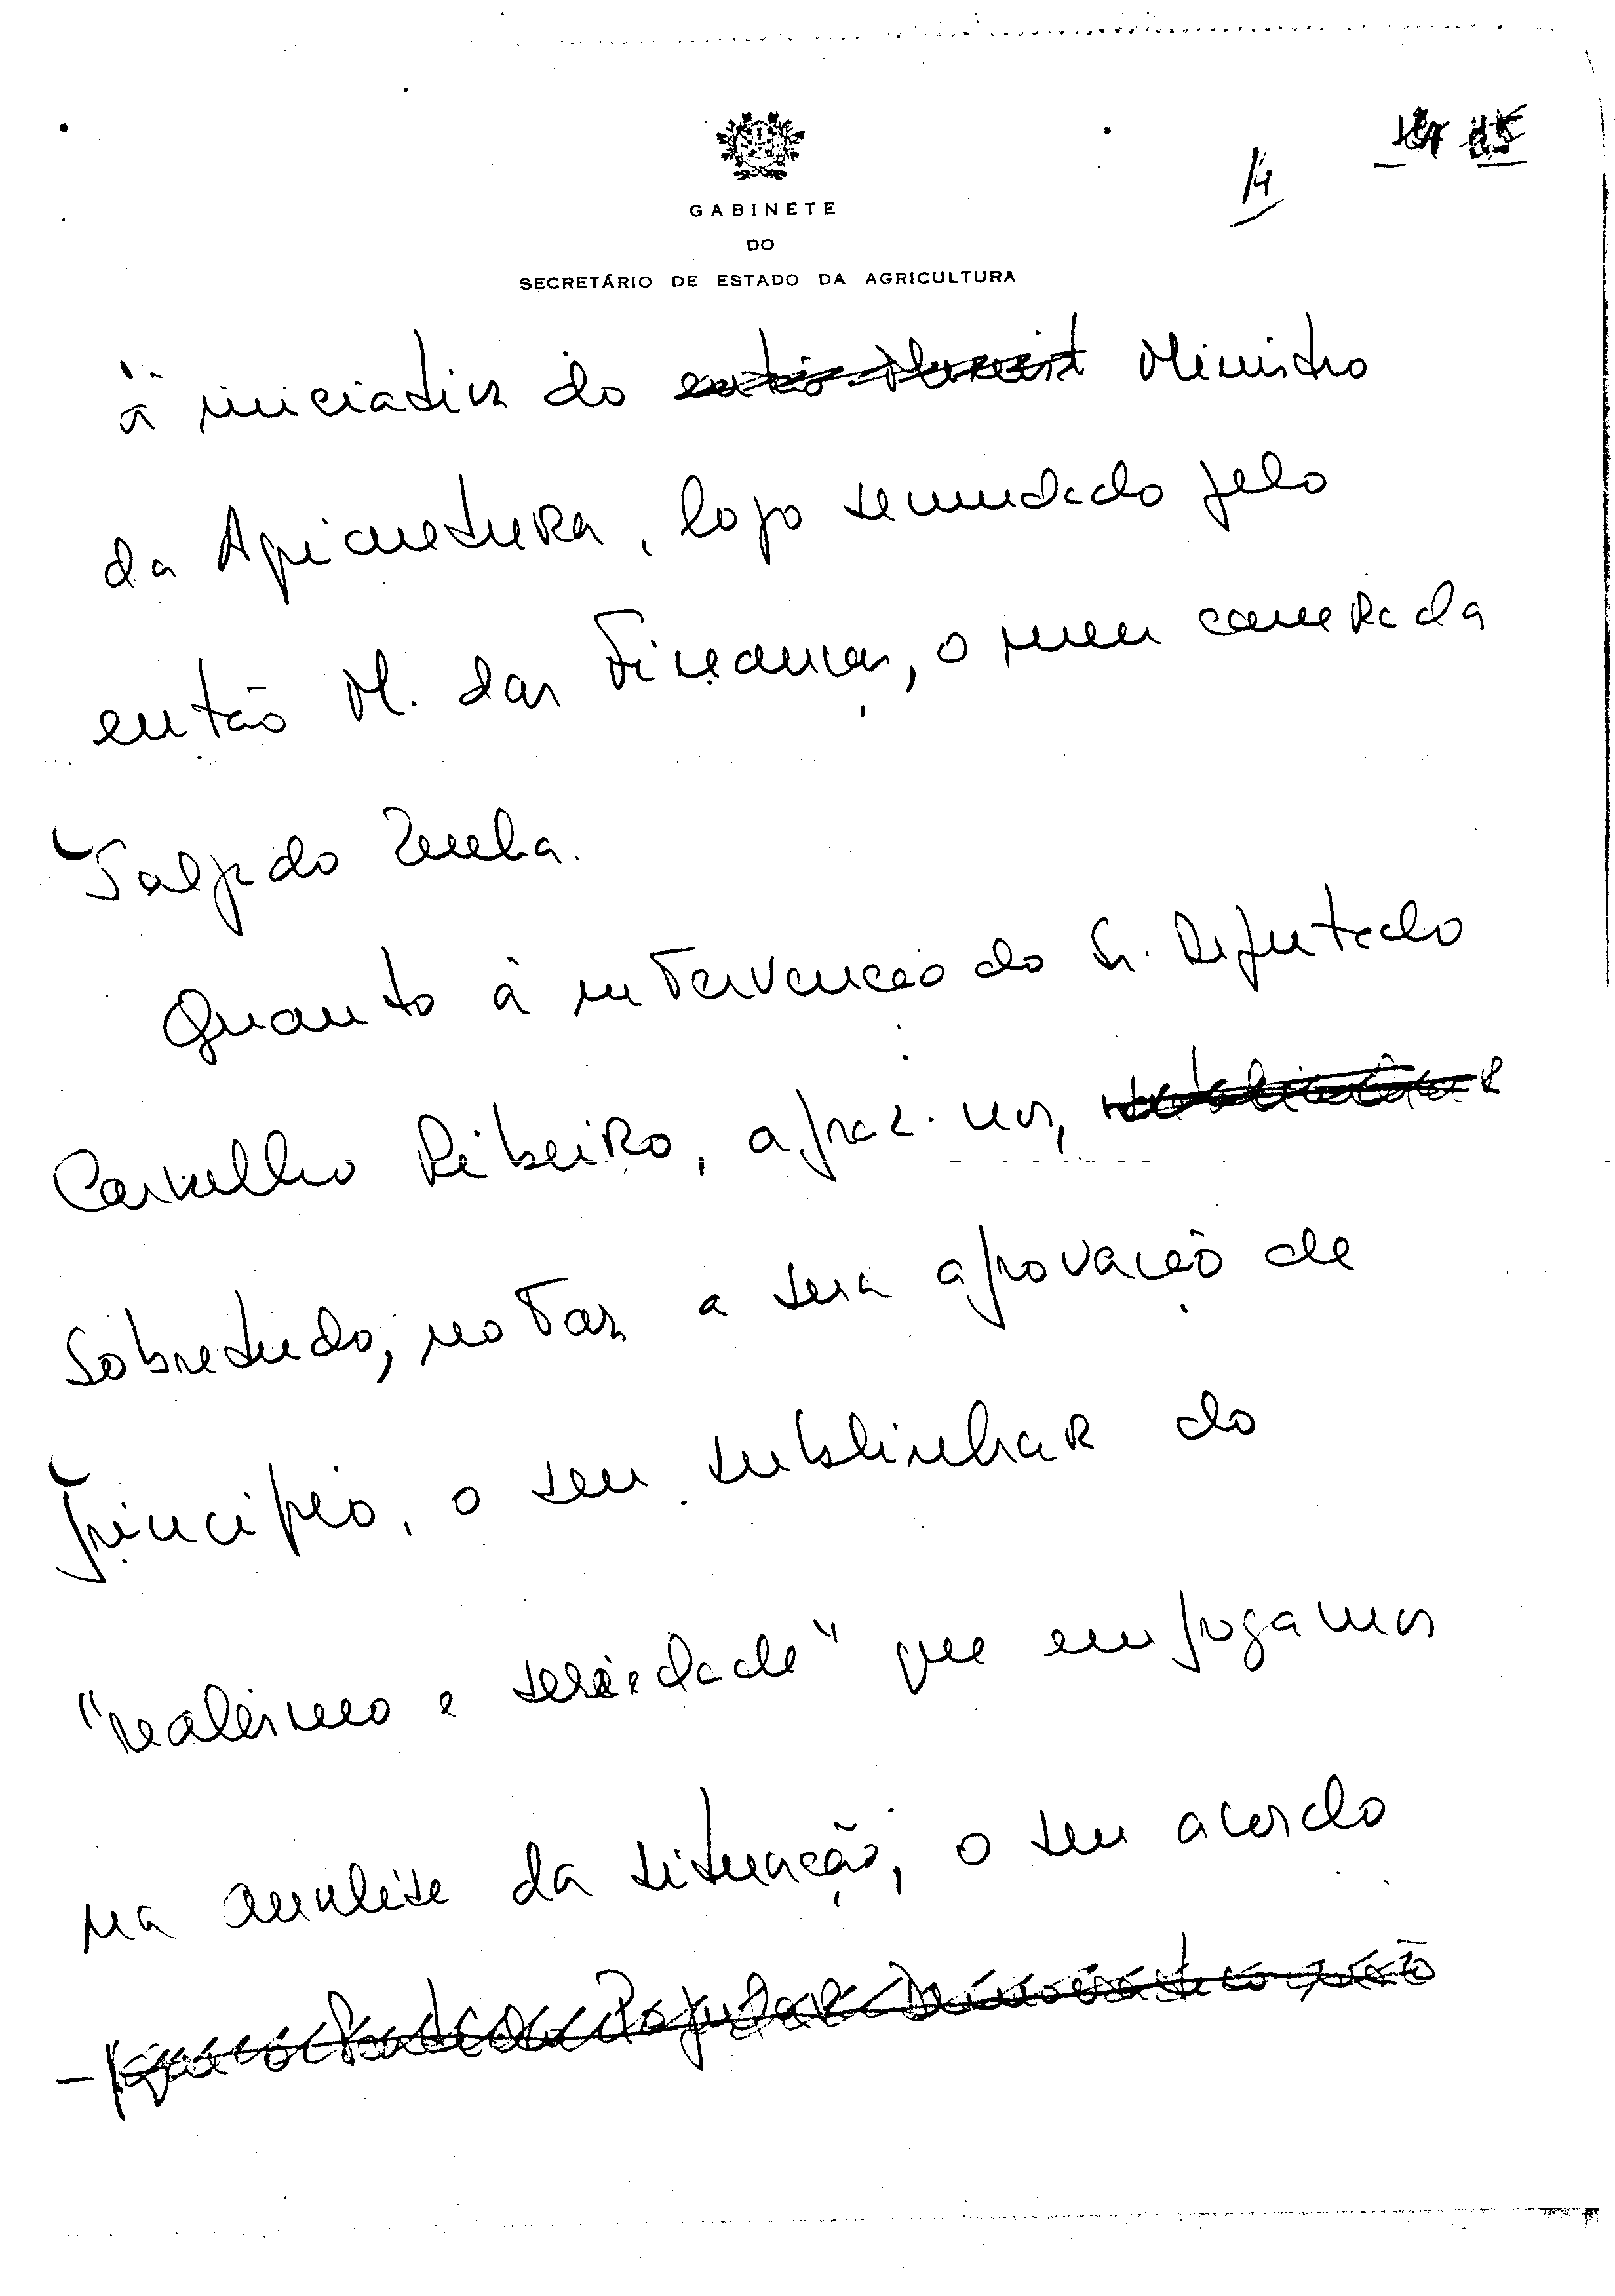 14
GABINETE
DO
SECRETÁRIO DE ESTADO DA AGRICULTURA
à iniciativa do Ministro
da Agricultura, logo secundado pelo
então M. das Finanças, o meu camarada
Salgado Zenha.
Quanto à intervenção do Sr. Deputado
Carvalho Ribeiro, apraz-nos,
sobretudo, notar a sua aprovação de
princípio, o seu sublinhar do
"realismo e seriedade" que empregamos
na análise da situação, o seu acordo